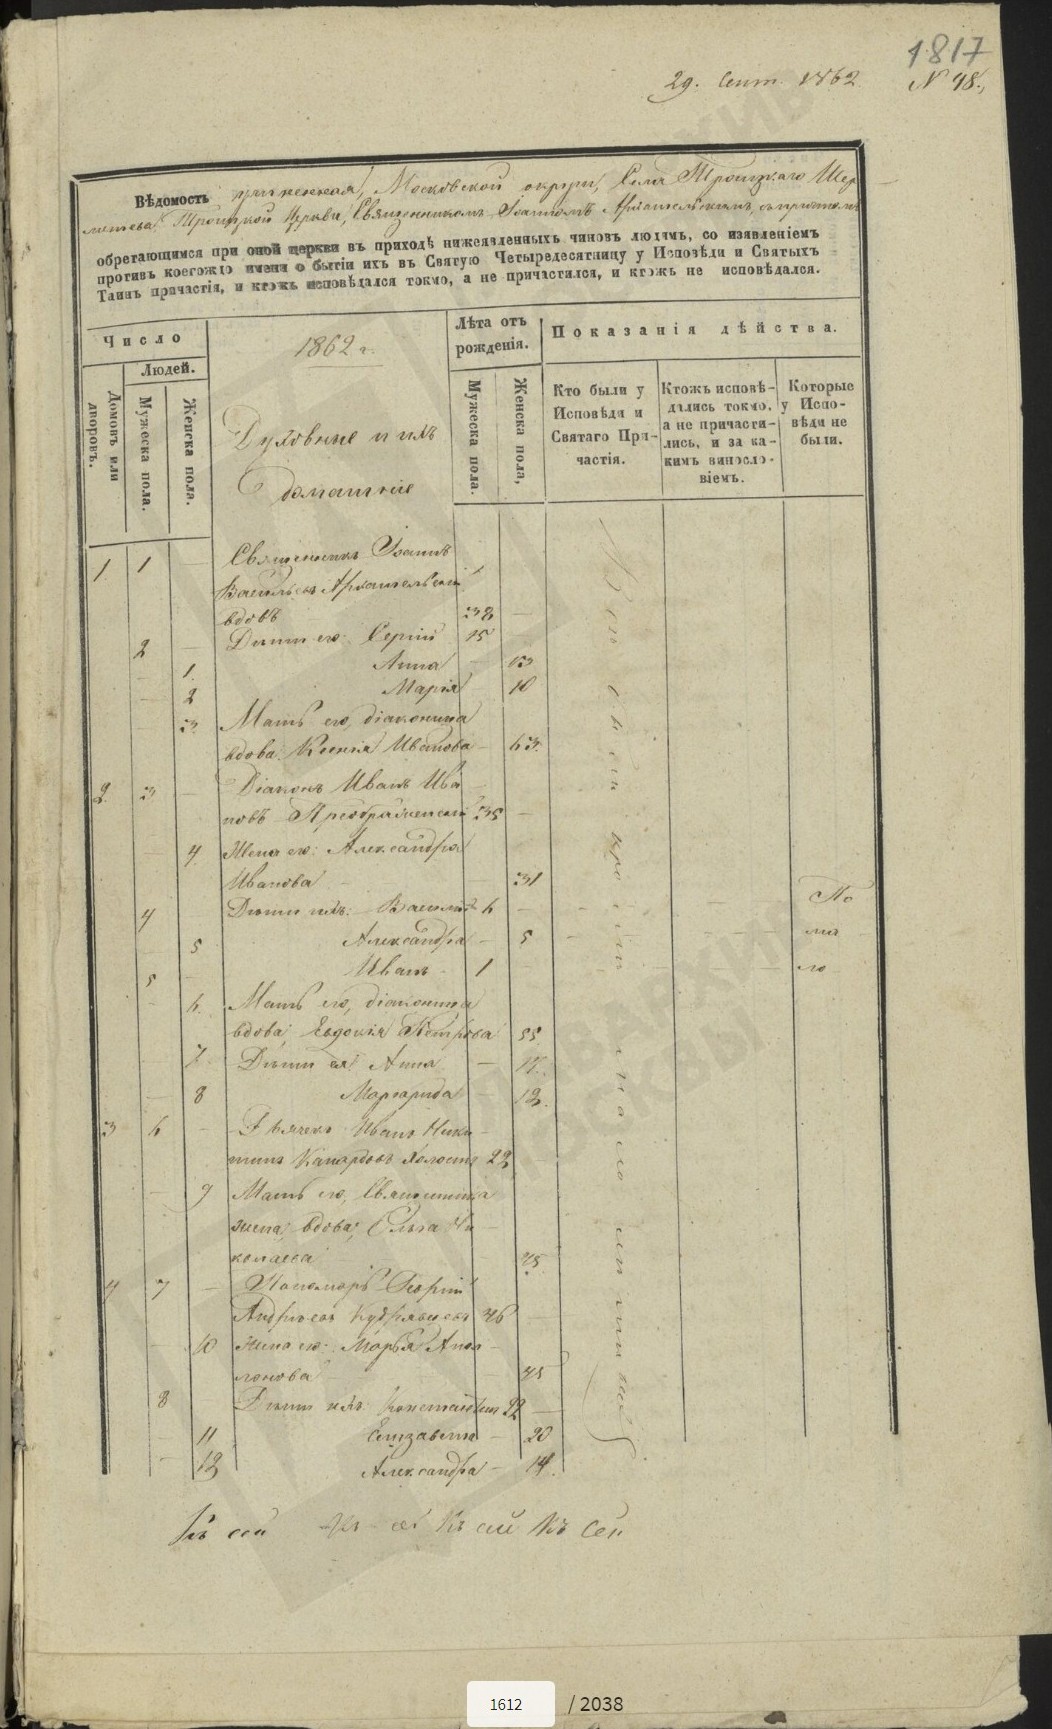 1817
29. Сент. 1862
№ 98.
Вѣдомость приходская, Московской округи, Села Троицкаго Шере
метева, Троицкой Церкви, Священникомъ Іоанномъ Архангельскимъ, съ причтомъ
обретающимся при оной церкви въ приходѣ нижеявленныхъ чиновъ людямъ, со изявленіемъ
противъ коегождо имени о бытіи ихъ въ Святую Четыредесятницу у Исповѣди и Святыхъ
Таинъ причастія, и ктожь исповѣдался токмо, а не причастился, и ктожь не исповѣдался.
Число
Людей.
Домовъ или дворовъ.
Мужеска пола.
Женска пола.
1862 г.
Духовные и ихъ
домашніе
Лѣта отъ
рожденія.
Мужеска пола.
Женска пола,
Показанія дѣйства.
Кто были у
Исповѣди и
Святаго При-
частія.
Ктожь исповѣ-
дались токмо,
а не причасти-
лись, и за ка-
кимъ винosло-
віемъ.
Которые
у Испо-
вѣди не
были.
1 1 — Священникъ Іоаннъ
Васильевъ Архангельскій
вдовъ 38 —
2 — Дѣти его: Сергій 15
1 Анна — 13
2 Марія — 10
3 Мать его, діаконица
вдова Ксенія Иванова — 63.
2. 3 — Діаконъ Иванъ Ива
новъ Преображенскій 35 —
4 Жена его: Александра
Иванова — 31
4 Дѣти ихъ: Василій 6 — По
5 Александра — 5 ма
5 — Иванъ — 1 ло
6. Мать его, діаконица
вдова, Евдокія Петрова 55
7 Дѣти ея: Анна — 17.
8 Маргарита — 12.
3 6 — Дьячекъ Иванъ Ники
тинъ холостъ 23
9 Мать его, Священника
жена, вдова, Ольга Ни
колаева 45
4 7 — Пономарь Георгій
Андреевъ Кудрявцевъ 46 —
10 жена его: Марья Апол
лонова 45
8 Дѣти ихъ: Константинъ 22 —
11 Елизавета — 20
12 Александра — 14.
Къ сей Къ сей Къ сей